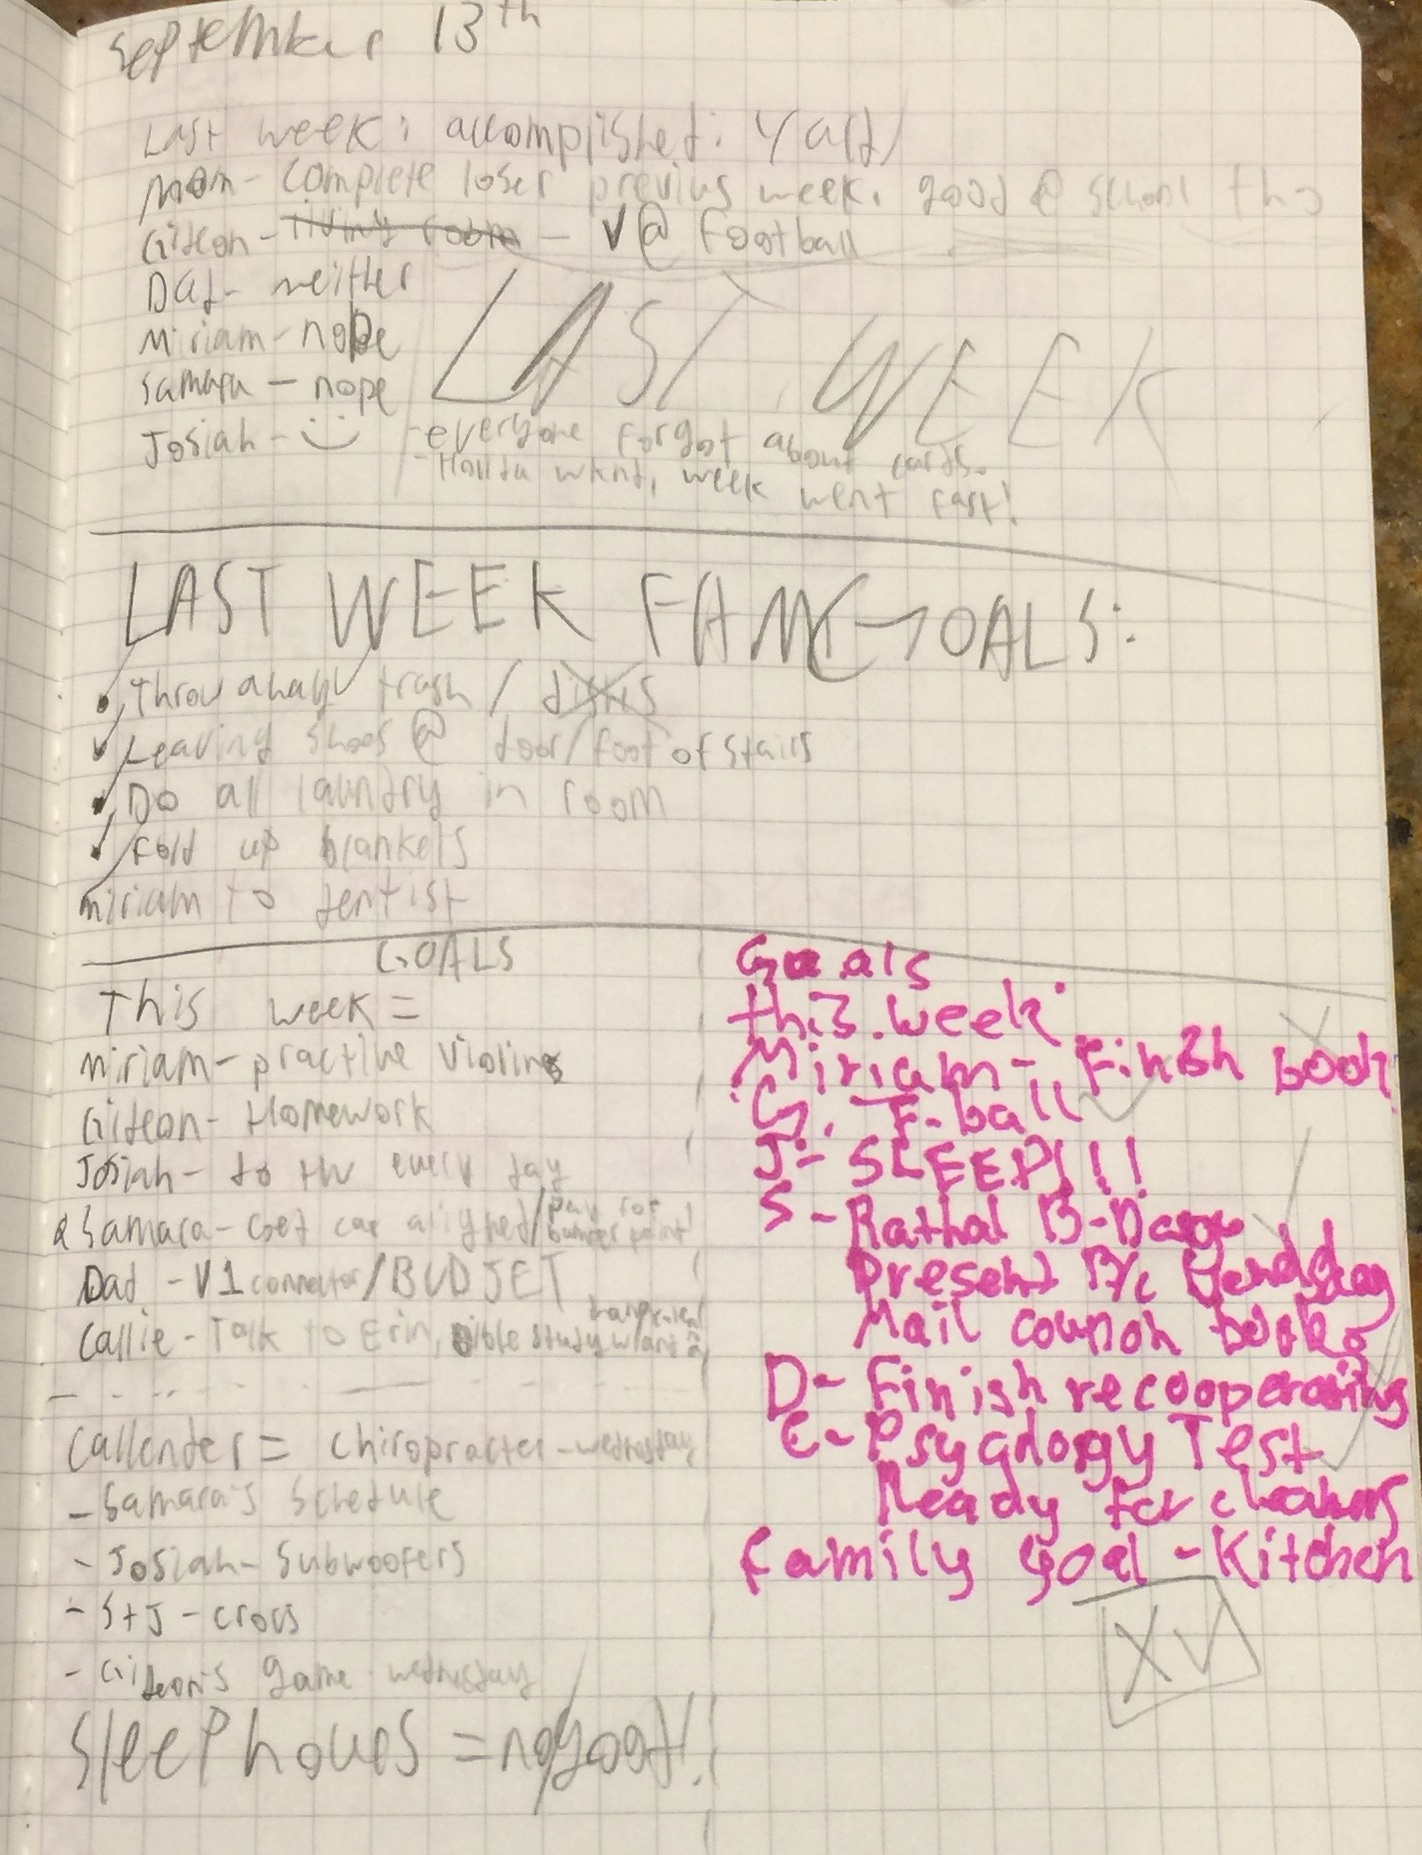 September 13th
Last week: accomplished: Yard
Mom - complete loser previus week. good @ school tho
Gideon - living room - V@ Football
Dad - neither
Miriam - nope
Samara - nope
Josiah -
LAST WEEK
- everyone forgot about cards.
- week went fast!
LAST WEEK FAM GOALS:
Throw away trash / dishes
Leaving shoes @ door/foot of stairs
Do all laundry in room
Fold up blankets
Miriam to dentist
GOALS
This week =
Miriam - practive violin
Gideon - Homework
Josiah - to the every day
Samara - Get car aligned/pay for bumper paint!
Dad - V1 connector/BUDJET
Callie - Talk to Erin, bible study
Callender = Chiropracter - wednesday
- Samara's Schedule
- Josiah - Subwoofers
- S+J - crocs
- Gideon's game - wednesday
Sleep hours = no good!!
Goals
this week
Miriam - Finish book
G. F-ball
J - SLEEP!!!
S - B-Day
Present
Mail book
D - Finish recooperating
C - Test
Ready for
Family goal - Kitchen
XV